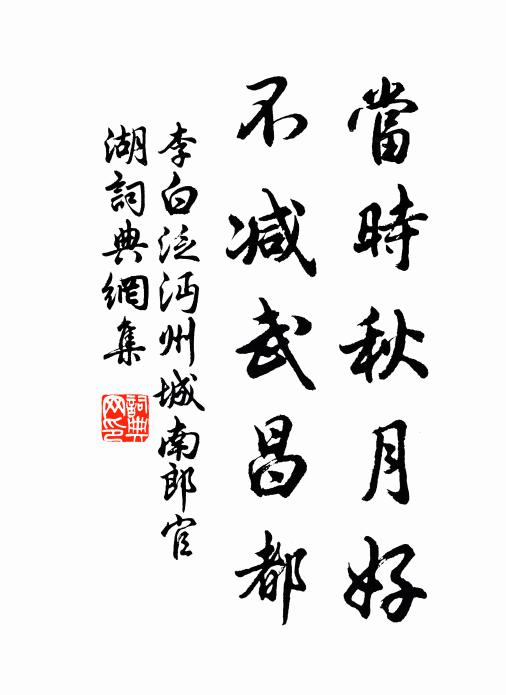 當時秋月好
不減武昌都
李白泛沔州城南郎官
湖詞典網集
詞典網印